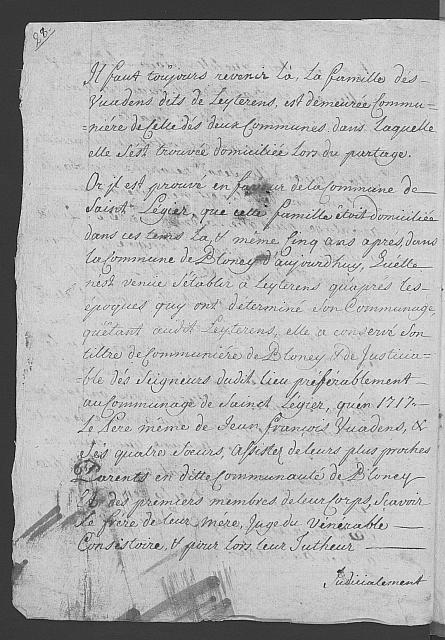 28.
Il faut toujours revenir là, La famille des
Vuadens dits de Leyterens, est demeurée Commu-
=niére de Celle des deux Communes, dans laquelle
elle s'est trouvée domiciliée lors du partage.
Or jl est prouvé en faveur de la Commune de
Saint Légier, que cette famille étoit domiciliée
dans ces tems là, & même Cinq ans apres, dans
la Commune de Bloney d'aujourdhuy, Qu'elle
nest venue s'établir à Leyterens qu'apres les
époques quy ont déterminé son Communage,
qu'étant audit Leyterens, elle a conservé son
tiltre de Communiére de Bloney & de Justicia-
=ble dés Seigneurs dudit lieu préférablement
au Communage de Sainct Légier, qu'en 1717.
Le Pere même de Jean François Vuadens, &
sés quatre Soeurs, assistez de leurs plus proches
Parents en ditte Communauté de Bloney
Et des premiers membres de leur Corps, Scavoir
Le frère de leur Mére, Juge du Vénérable
Consistoire, & pour lors leur Tutheur
Judicialement